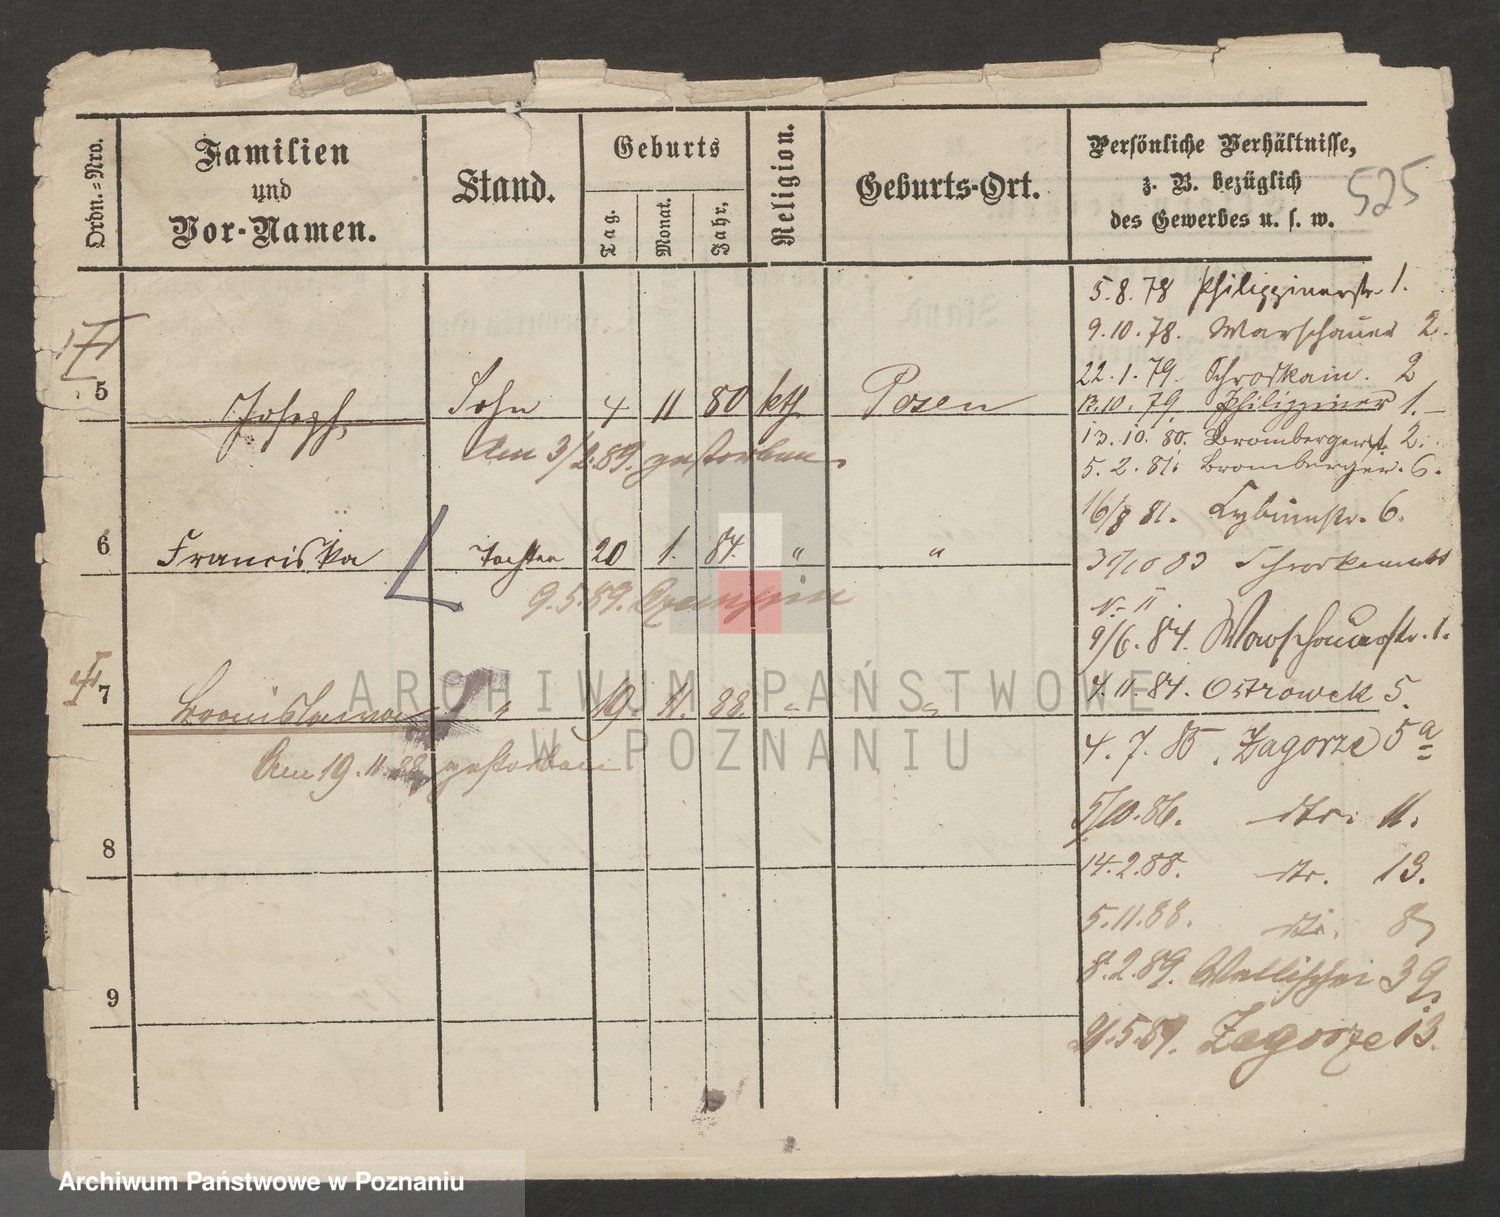 Ordn.=Nro.
Familien
und
Vor-Namen.
Stand.
Geburts
Tag.
Monat.
Jahr.
Religion.
Geburts-Ort.
Persönliche Verhältnisse,
z. B. bezüglich
des Gewerbes u. s. w.
525
5 Joseph, Sohn 4 11 80 kth. Posen
Am 3/2.89. gestorben.
6 Franciska Tochter 20 1. 84. " "
9.5.89.
7 " 19. 11. 88. " "
Am 19.11.88. gestorben
8
9
5.8.78 Philippinerstr 1.
9.10.78. Warschauer 2.
22.1.79. Schrodkam. 2
13.10.79. Philippiner 1.
13.10.80. Brombergerst. 2.
5.2.81. Bromberger. 6.
16/8 81. Cybinastr. 6.
31/10 83 Schrodkamarkt
N. 11.
9/6.84. Warschauerstr. 1.
4.11.84. Ostrowek 5.
4.7.85. Zagorze 5a
5/10.86. dto. 11.
14.2.88. dto. 13.
5.11.88. dto. 8
8.2.89. Wallischei 39.
21.5.89. Zagorze 13.
ARCHIWUM PAŃSTWOWE
W POZNANIU
Archiwum Państwowe w Poznaniu